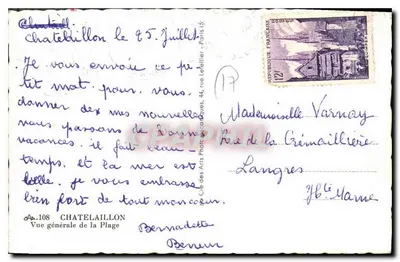 chatelaillon le 25 Juillet.
Je vous envoie ce pe
tit mot pour vous
donner des mes nouvelles
nous passons de bonnes
vacances. il fait beau
temps. et la mer est
belle. je vous embrasse
bien fort de tout mon cœur.
Bernadette
108 CHATELAILLON
Vue générale de la Plage
17
12F
Mademoiselle Varnay
Rue de la Crémaillière
Langres
Hte Marne